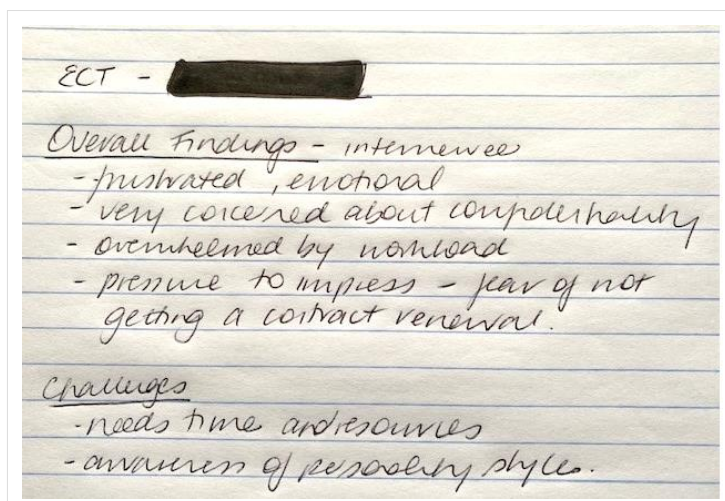 ECT -
Overall Findings - interviewee
- frustrated, emotional
- very concerned about confidentiality
- overwhelmed by workload
- pressure to impress - fear of not
getting a contract renewal.
Challenges
- needs time and resources
- awareness of personality styles.